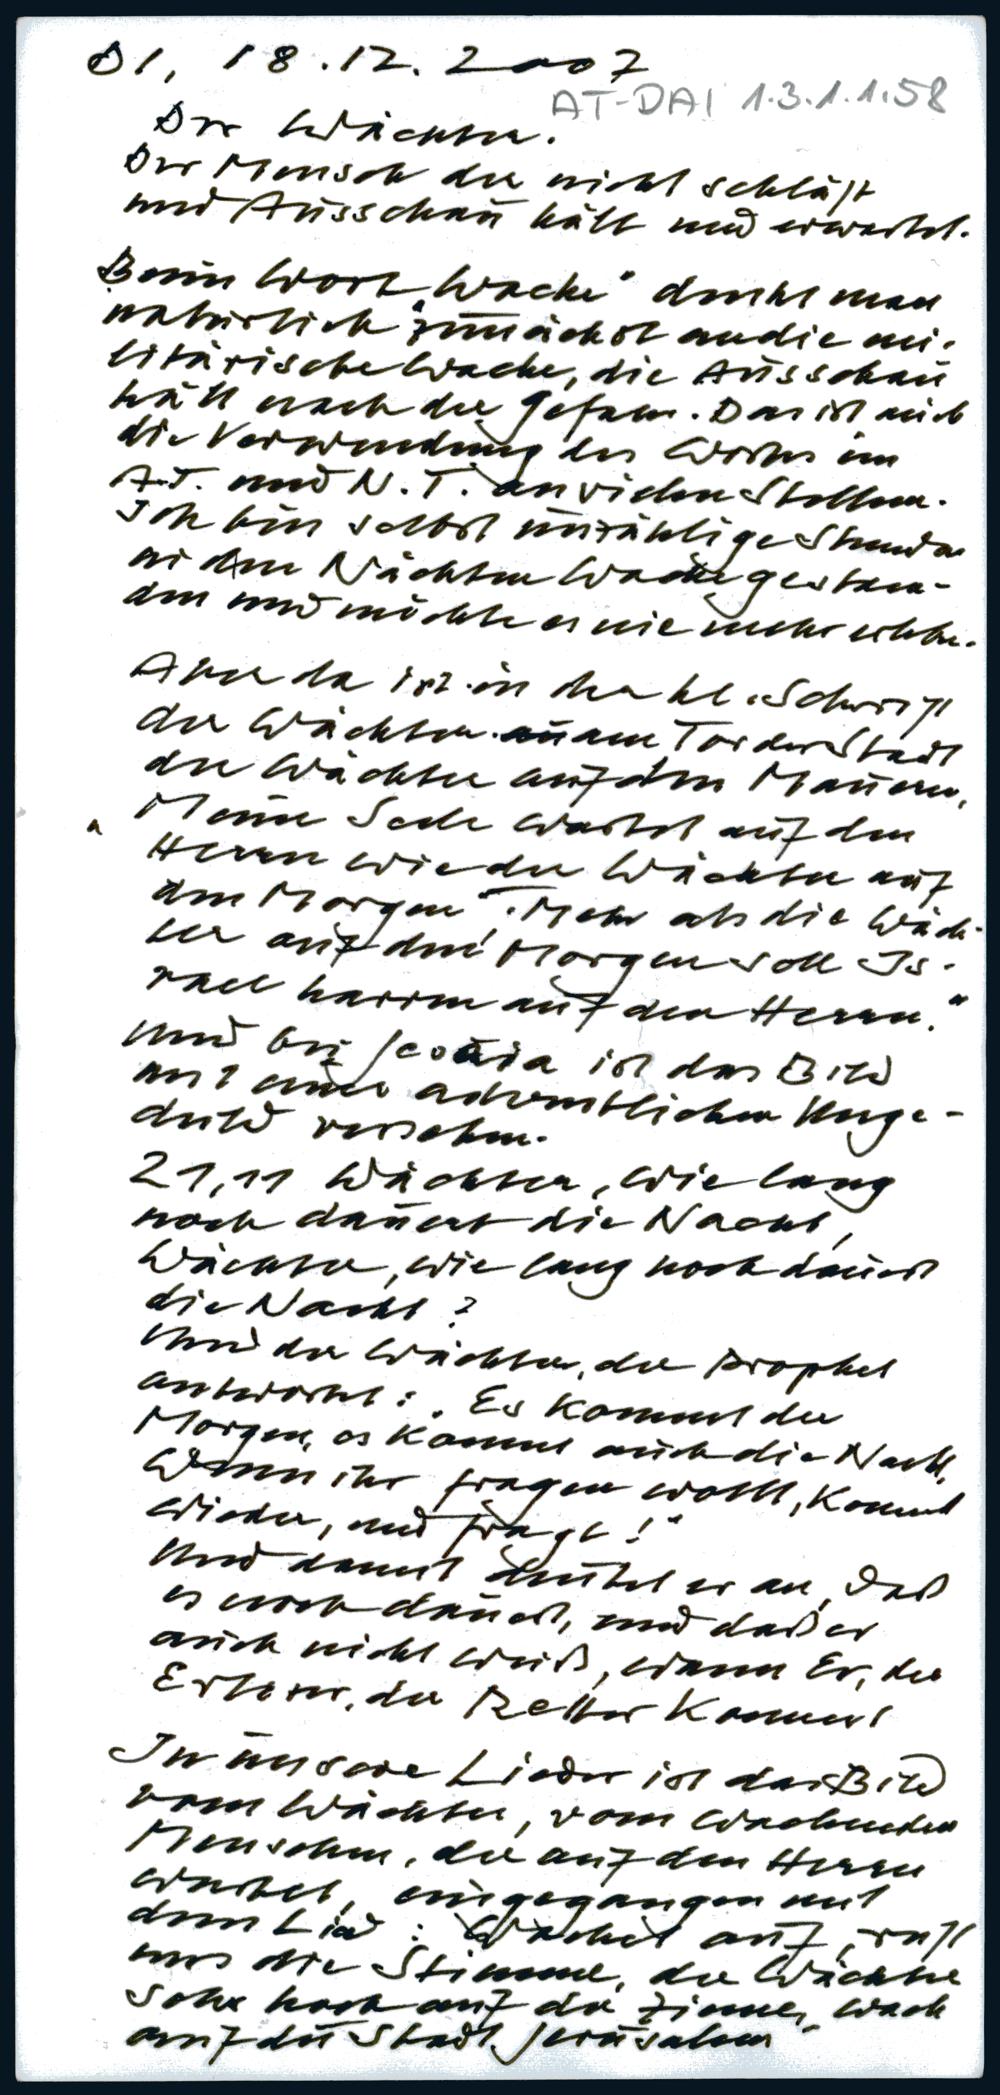 DI, 18.12.2007
AT-DAI 1.3.1.1.58
Der Wächter.
Der Mensch der nicht schläft
und Ausschau hält und erwartet.
Beim Wort „Wache" denkt man
natürlich zunächst an die mi-
litärische Wache, die Ausschau
hält nach der Gefahr. Das ist auch
die Verwendung des Wortes im
A.T. und N.T. an vielen Stellen.
Ich bin selbst unzählige Stunden
in den Nächten Wache gestan-
den und möchte es nie mehr erleben.
Aber da ist in der hl. Schrift
der Wächter am Tor der Stadt
der Wächter auf den Mauern,
"Meine Seele wartet auf den
Herrn wie der Wächter auf
den Morgen". Mehr als die Wäch-
ter auf den Morgen soll Is-
rael harren auf den Herrn."
Und bei Jesaia ist das Bild
mit einer adventlichen Unge-
duld versehen.
21,11 Wächter, wie lang
noch dauert die Nacht,
Wächter, wie lang noch dauert
die Nacht?
Und der Wächter, der Prophet
antwortet: „Es kommt der
Morgen, es kommt auch die Nacht,
Wenn ihr fragen wollt, kommt
wieder, und fragt!"
Und damit deutet er an, daß
es noch dauert, und daß er
auch nicht weiß, wann Er, der
Erlöser, der Retter kommt
In unsere Lieder ist das Bild
vom Wächter, vom wachenden
Menschen, der auf den Herrn
wartet, eingegangen mit
dem Lied: Wachet auf, ruft
uns die Stimme, der Wächter
sehr hoch auf der Zinne, wach
auf du Stadt Jerusalem"